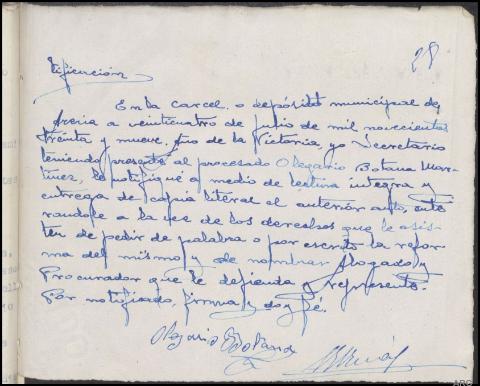 28
tificación
En la Carcel, o depósito municipal de
a veinticuatro de julio de mil novecientos
treinta y nueve, Año de la Victoria, yo Secretario
teniendo presente al procesado Olegario Botana Mar-
tinez, le notifiqué a medio de lectura integra y
entrega de copia literal el anterior auto, ente
randole a la vez de los derechos que le asis-
ten de pedir de palabra o por escrito la refor-
ma del mismo y de nombrar Abogado y
Procurador que le defienda y represente.
Por notificado, firma y doy fé.
Olegario Botana